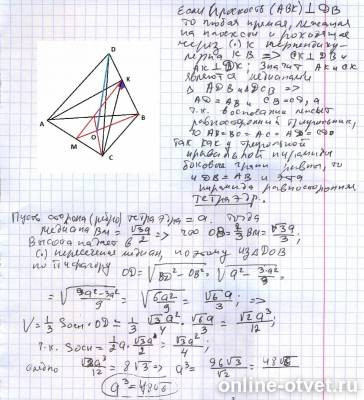 Если плоскость (АВК) ⊥ DB
то любая прямая, лежащая
на плоскости и проходящая
через (·) К перпендику-
лярна К В ⇒ CK ⊥ DB и
AK ⊥ DK; Значит АК и СК
являются медианами
Δ ADB и ΔDCB ⇒
AD = AB и CB = CD, а
т.к. в основании лежит
равносторонний треугольник,
то AB = BC = AC = AD = CD
так как у
правильной пирамиды
боковые грани равны, то
и DB = AB и эта
пирамида равносторонняя
Тетраэдр.
D
K
A
B
M
O
C
Пусть сторона (ребро) тетраэдра = a. тогда
медиана BM = √3a/2 ⇒ что OB = 2/3 BM = √3a/3;
Высота падает в
(·) пересечения медиан, поэтому из ΔDOB
по Пифагору OD = √(BD² - OB²) = √(a² - 3a²/9) =
= √((9a² - 3a²)/9) = √(6a²/9) = √6a/3; ⇒
V = 1/3 Sосн · OD = 1/3 · √3a²/4 · √6a/3 = √2a³/12;
т.к. Sосн = 1/2 a · √3a/2 = √3a²/4;
√2a³/12 = 8√3 ⇒ a³ = 96√3/√2 = 48√6
a³ = 48√6
online-otvet.ru